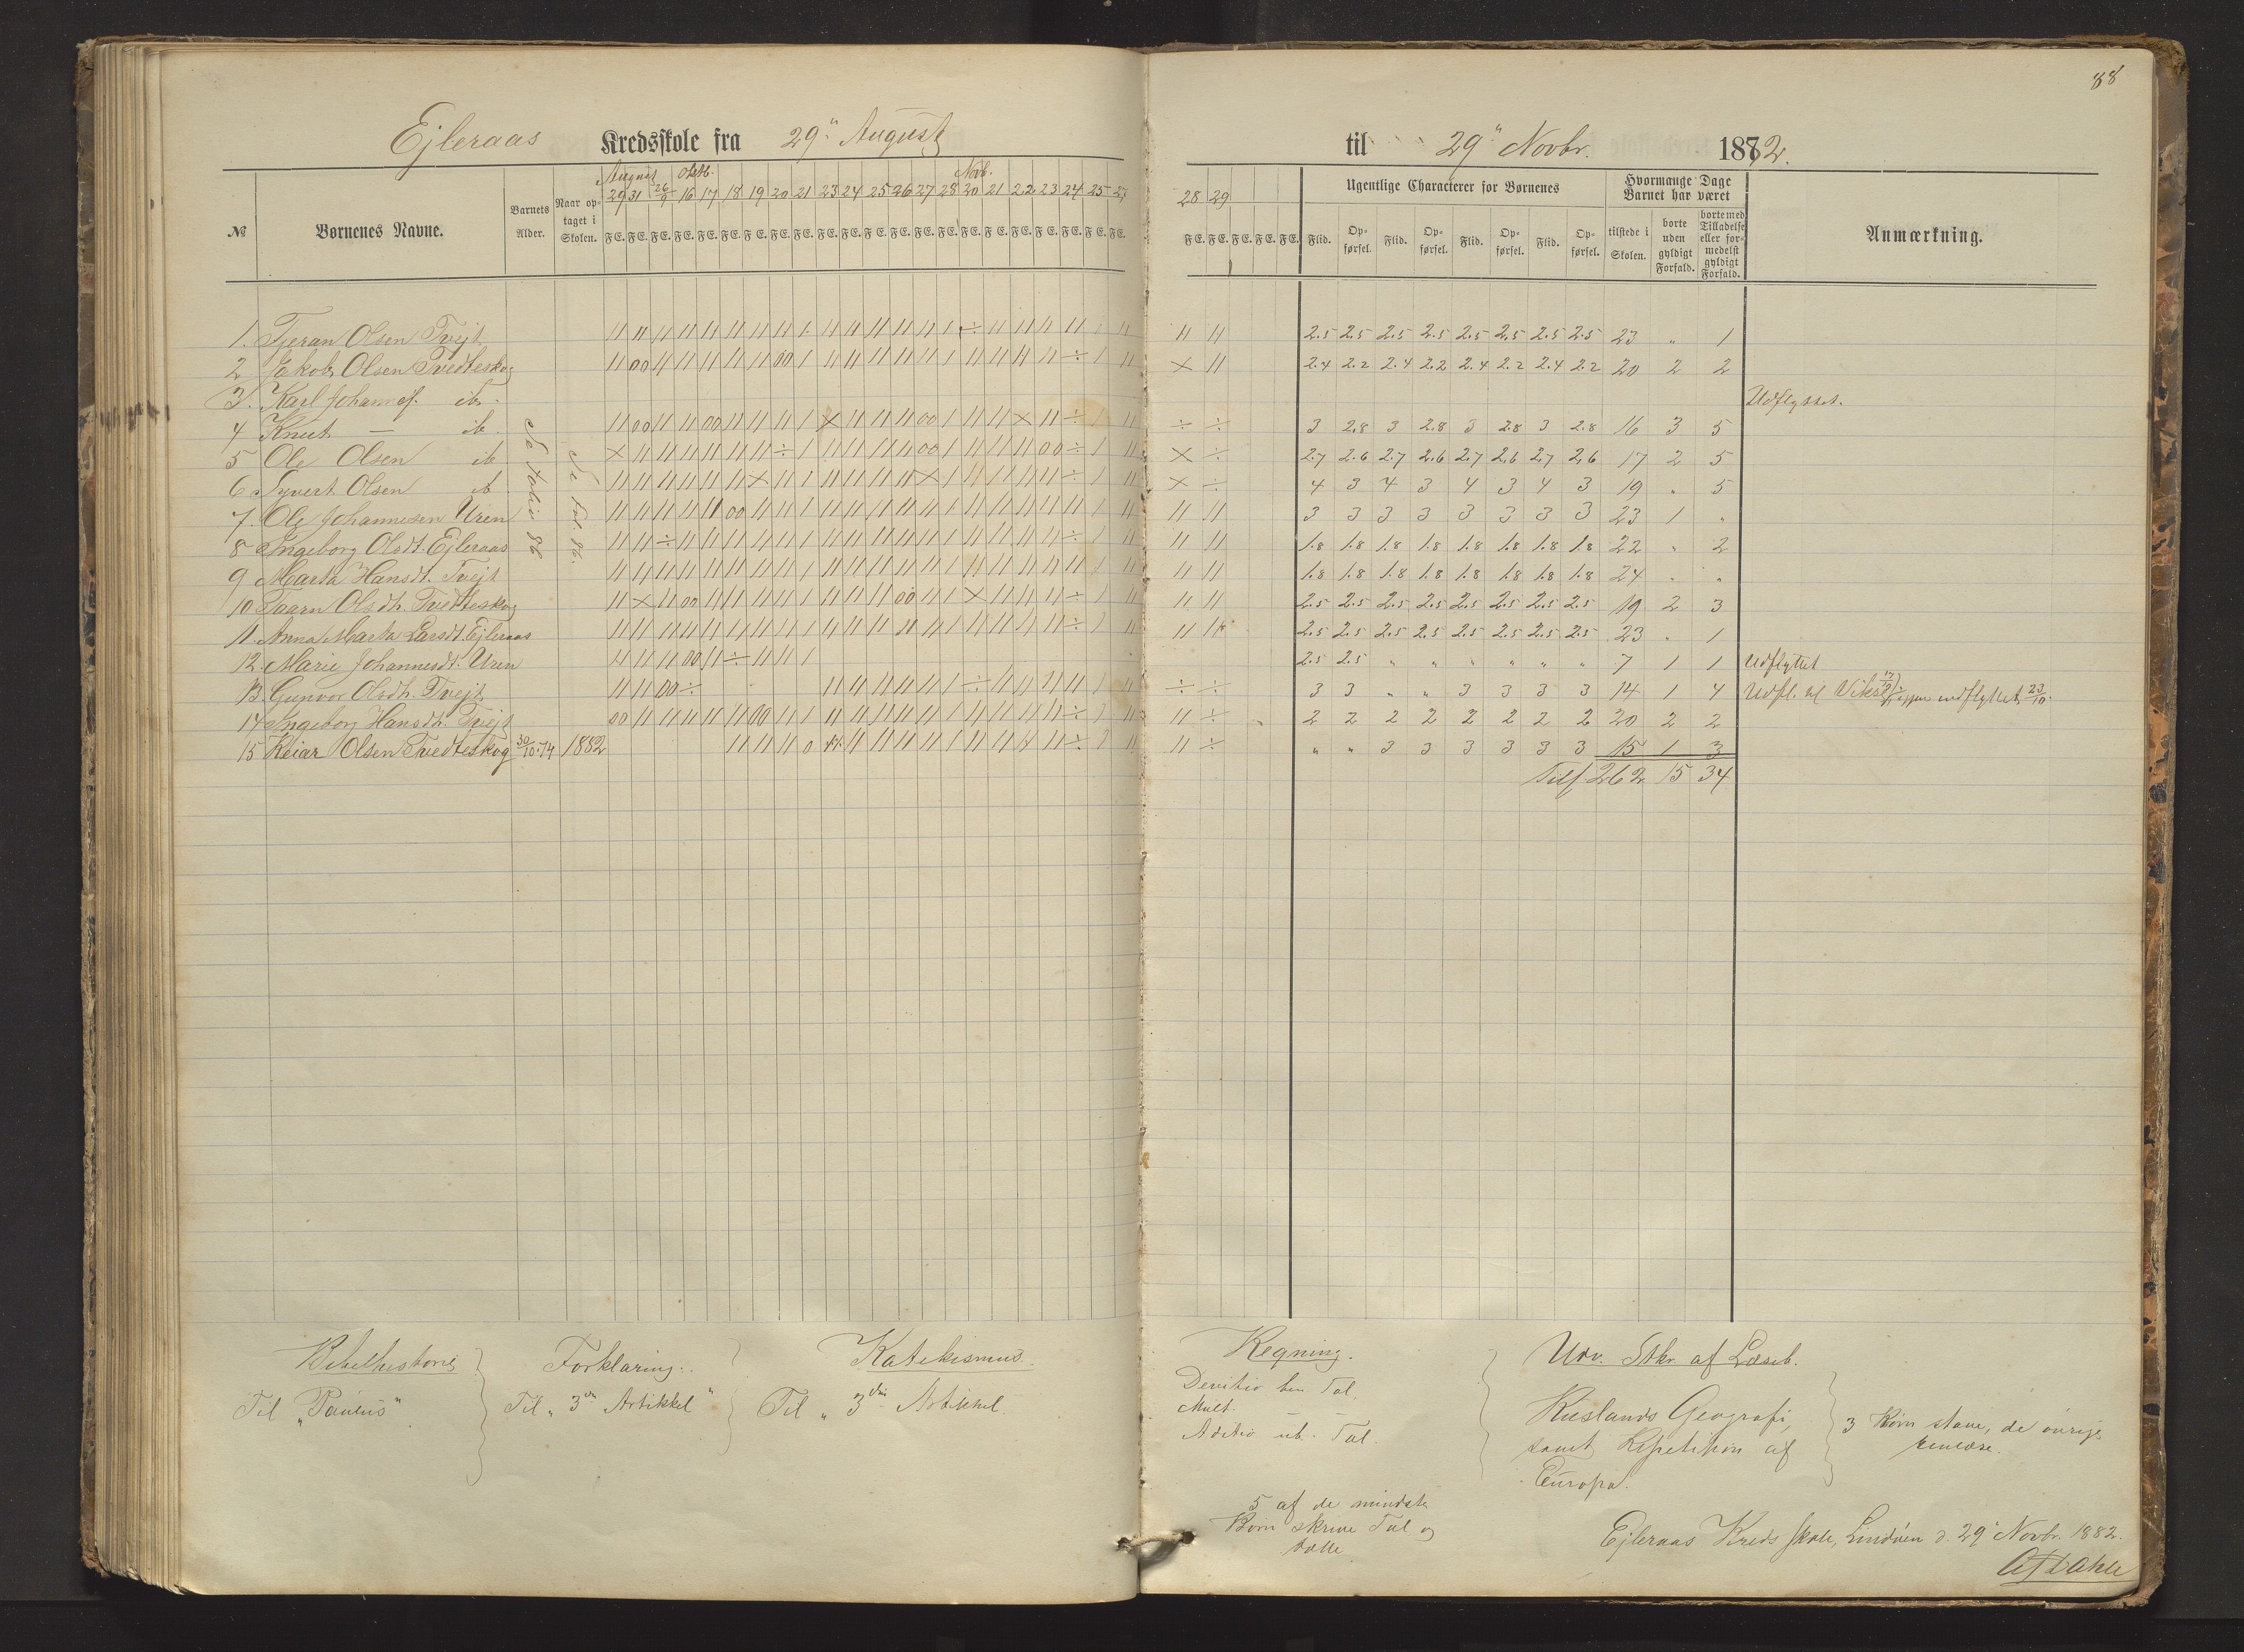 88
Ejleraas Kredsskole fra 29" August til 29" Novbr. 1882.
August Oktb. Novb.
№ Børnenes Navne. Barnets Alder. Naar optaget i Skolen. 29 31 26/9 16 17 18 19 20 21 23 24 25 26 27 28 20 21 22 23 24 25 27 28 29
F E. F E. F E. F E. F E. F E. F E. F E. F E. F E. F E. F E. F E. F E. F E. F E. F E. F E. F E. F E. F E. F E. F E. F E. F E. F E. F E.
Ugentlige Characterer for Børnenes
Flid. Opførsel. Flid. Opførsel. Flid. Opførsel. Flid. Opførsel.
Hvormange Dage Barnet har været
tilstede i Skolen. borte uden gyldigt Forfald. borte med Tilladelse eller formedelst gyldigt Forfald.
Anmærkning.
1. Tjeran Olsen Tvejt 2.5 2.5 2.5 2.5 2.5 2.5 2.5 2.5 23 " 1
2 Jakob Olsen Tvedteskog 2.4 2.2 2.4 2.2 2.4 2.2 2.4 2.2 20 2 2
3. Karl Johannes. ib. Udflyttet.
4 Knut — ib. 3 2.8 3 2.8 3 2.8 3 2.8 16 3 5
5 Ole Olsen ib 2.7 2.6 2.7 2.6 2.7 2.6 2.7 2.6 17 2 5
6 Syvert Olsen ib 4 3 4 3 4 3 4 3 19 " 5
7. Ole Johannesen Uren 3 3 3 3 3 3 3 3 23 1 "
8 Ingeborg Olsdt. Ejleraas 1.8 1.8 1.8 1.8 1.8 1.8 1.8 1.8 22 " 2
9 Marta Hansdt. Tvejt 1.8 1.8 1.8 1.8 1.8 1.8 1.8 1.8 24 " "
10 Taarn Olsdtr. Tvedteskog 2.5 2.5 2.5 2.5 2.5 2.5 2.5 2.5 19 2 3
11. Anna Marta Larsdt. Ejleraas 2.5 2.5 2.5 2.5 2.5 2.5 2.5 2.5 23 " 1
12. Marie Johannesdt. Uren 2.5 2.5 " " " " " " 7 1 1 Udflyttet
13 Gunvor Olsdtr. Tvejt 3 3 " " 3 3 3 3 14 1 4 Udfl. til indflyttet 23/10.
14 Ingeborg Hansdtr. Tvejt 2 2 2 2 2 2 2 2 20 2 2
15 Reiar Olsen Tvedteskog 30/10.74 1882 " " 3 3 3 3 3 3 15 1 3
262 15 34
Se Folio 86
Se Fol. 86.
Bibelhistorie
Til "Paulus"
Forklaring.
Til "3die Artikkel"
Katekismus.
Til "3die Artikkel.
Regning.
Mult.
Aditio ub. Tal.
5 af de mindste
Børn skrive Tal og
tælle
Udv. Stkr. af Læseb.
Ruslands Geografi,
samt Repetition af
Europa.
3 Børn stave, de øvrige
renlæse.
Ejleraas Kreds skole, Lindøen d. 29" Novbr. 1882.